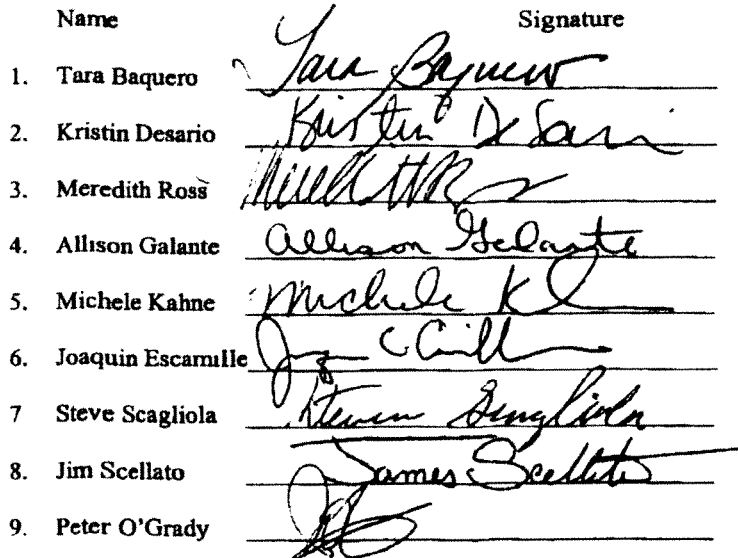 Name Signature
1. Tara Baquero Tara Baquero
2. Kristin Desario Kristin DeSari
3. Meredith Ross
4. Allison Galante Allison Galante
5. Michele Kahne Michele K
6. Joaquin Escamille
7 Steve Scagliola Steven Scagliola
8. Jim Scellato James Scellato
9. Peter O'Grady